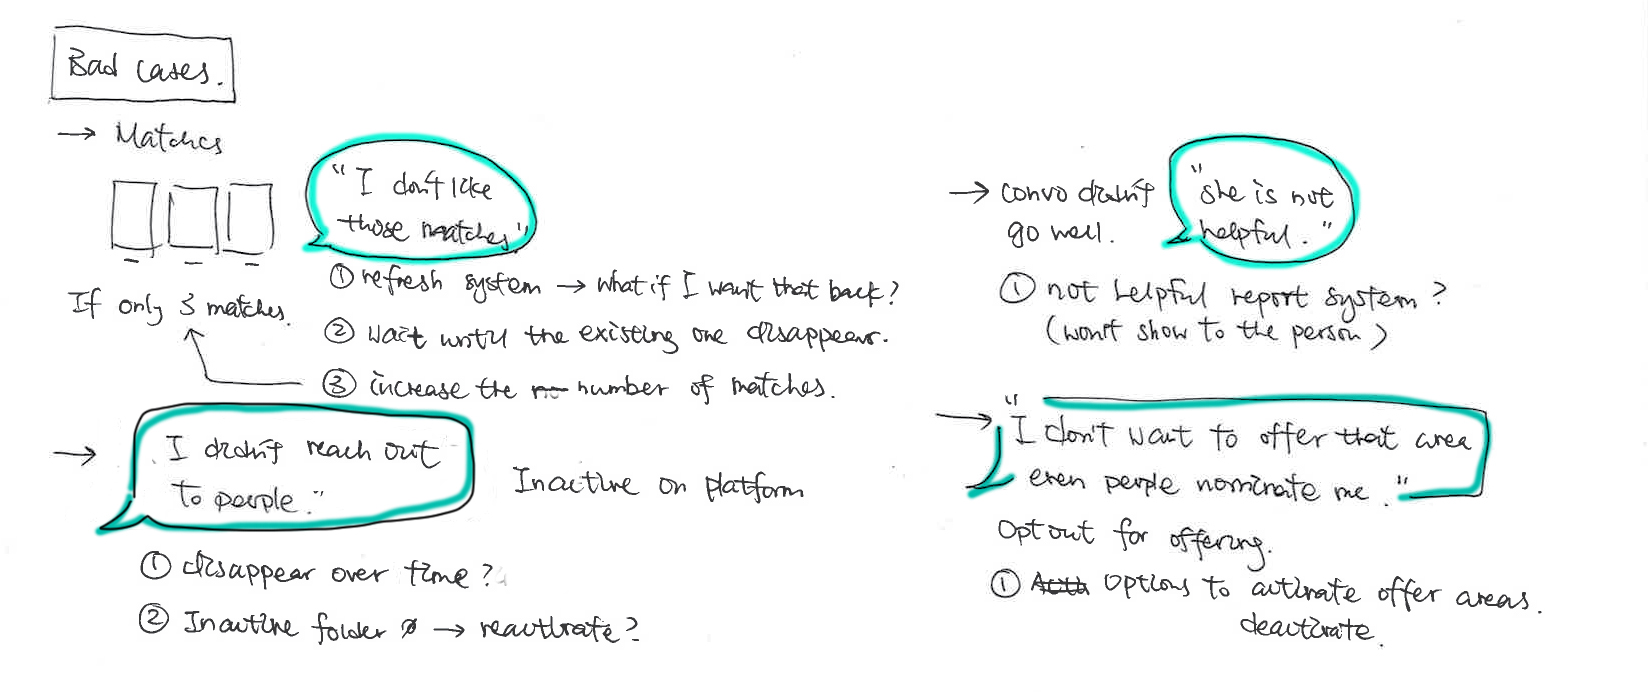 Bad cases.
→ Matches
"I don't like
those matches"
If only 3 matches.
① refresh system → what if I want that back?
② wait until the existing one disappear.
③ increase the number of matches.
→ I didn't reach out
to people."
Inactive on platform
① disappear over time?
② Inactive folder → reactivate?
→ convo didn't
go well.
"she is not
helpful."
① not helpful report system?
(won't show to the person)
→ "I don't want to offer that area
even people nominate me."
Opt out for offering.
① Options to activate offer areas.
deactivate.